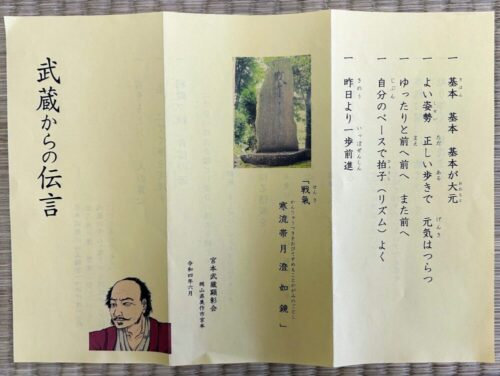 一 基本 基本 基本が大元
よい姿勢 正しい歩きで 元気はつらつ
ゆったりと前へ前へ また前へ
一 自分のペースで拍子(リズム)よく
一 昨日より一歩前進。
「戦氣
寒流帯月澄如鏡」
宮本武蔵顕彰会
岡山県美作市宮本
令和四年六月
武蔵からの伝言